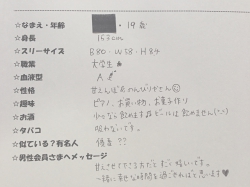 ☆なまえ・年齢 ・19歳
☆身長 153cm
☆スリーサイズ B80・W58・H84
☆職業 大学生
☆血液型 A
☆性格 甘えんぼ&のんびりさん
☆趣味 ピアノ、お買い物、お菓子作り
☆お酒 少しなら飲めますがビールは飲めません
☆タバコ 吸わないです。
☆似ている?有名人 ??
☆男性会員さまへメッセージ
甘えさせてくれる
一緒に幸せな時間を過ごせればと思います♥